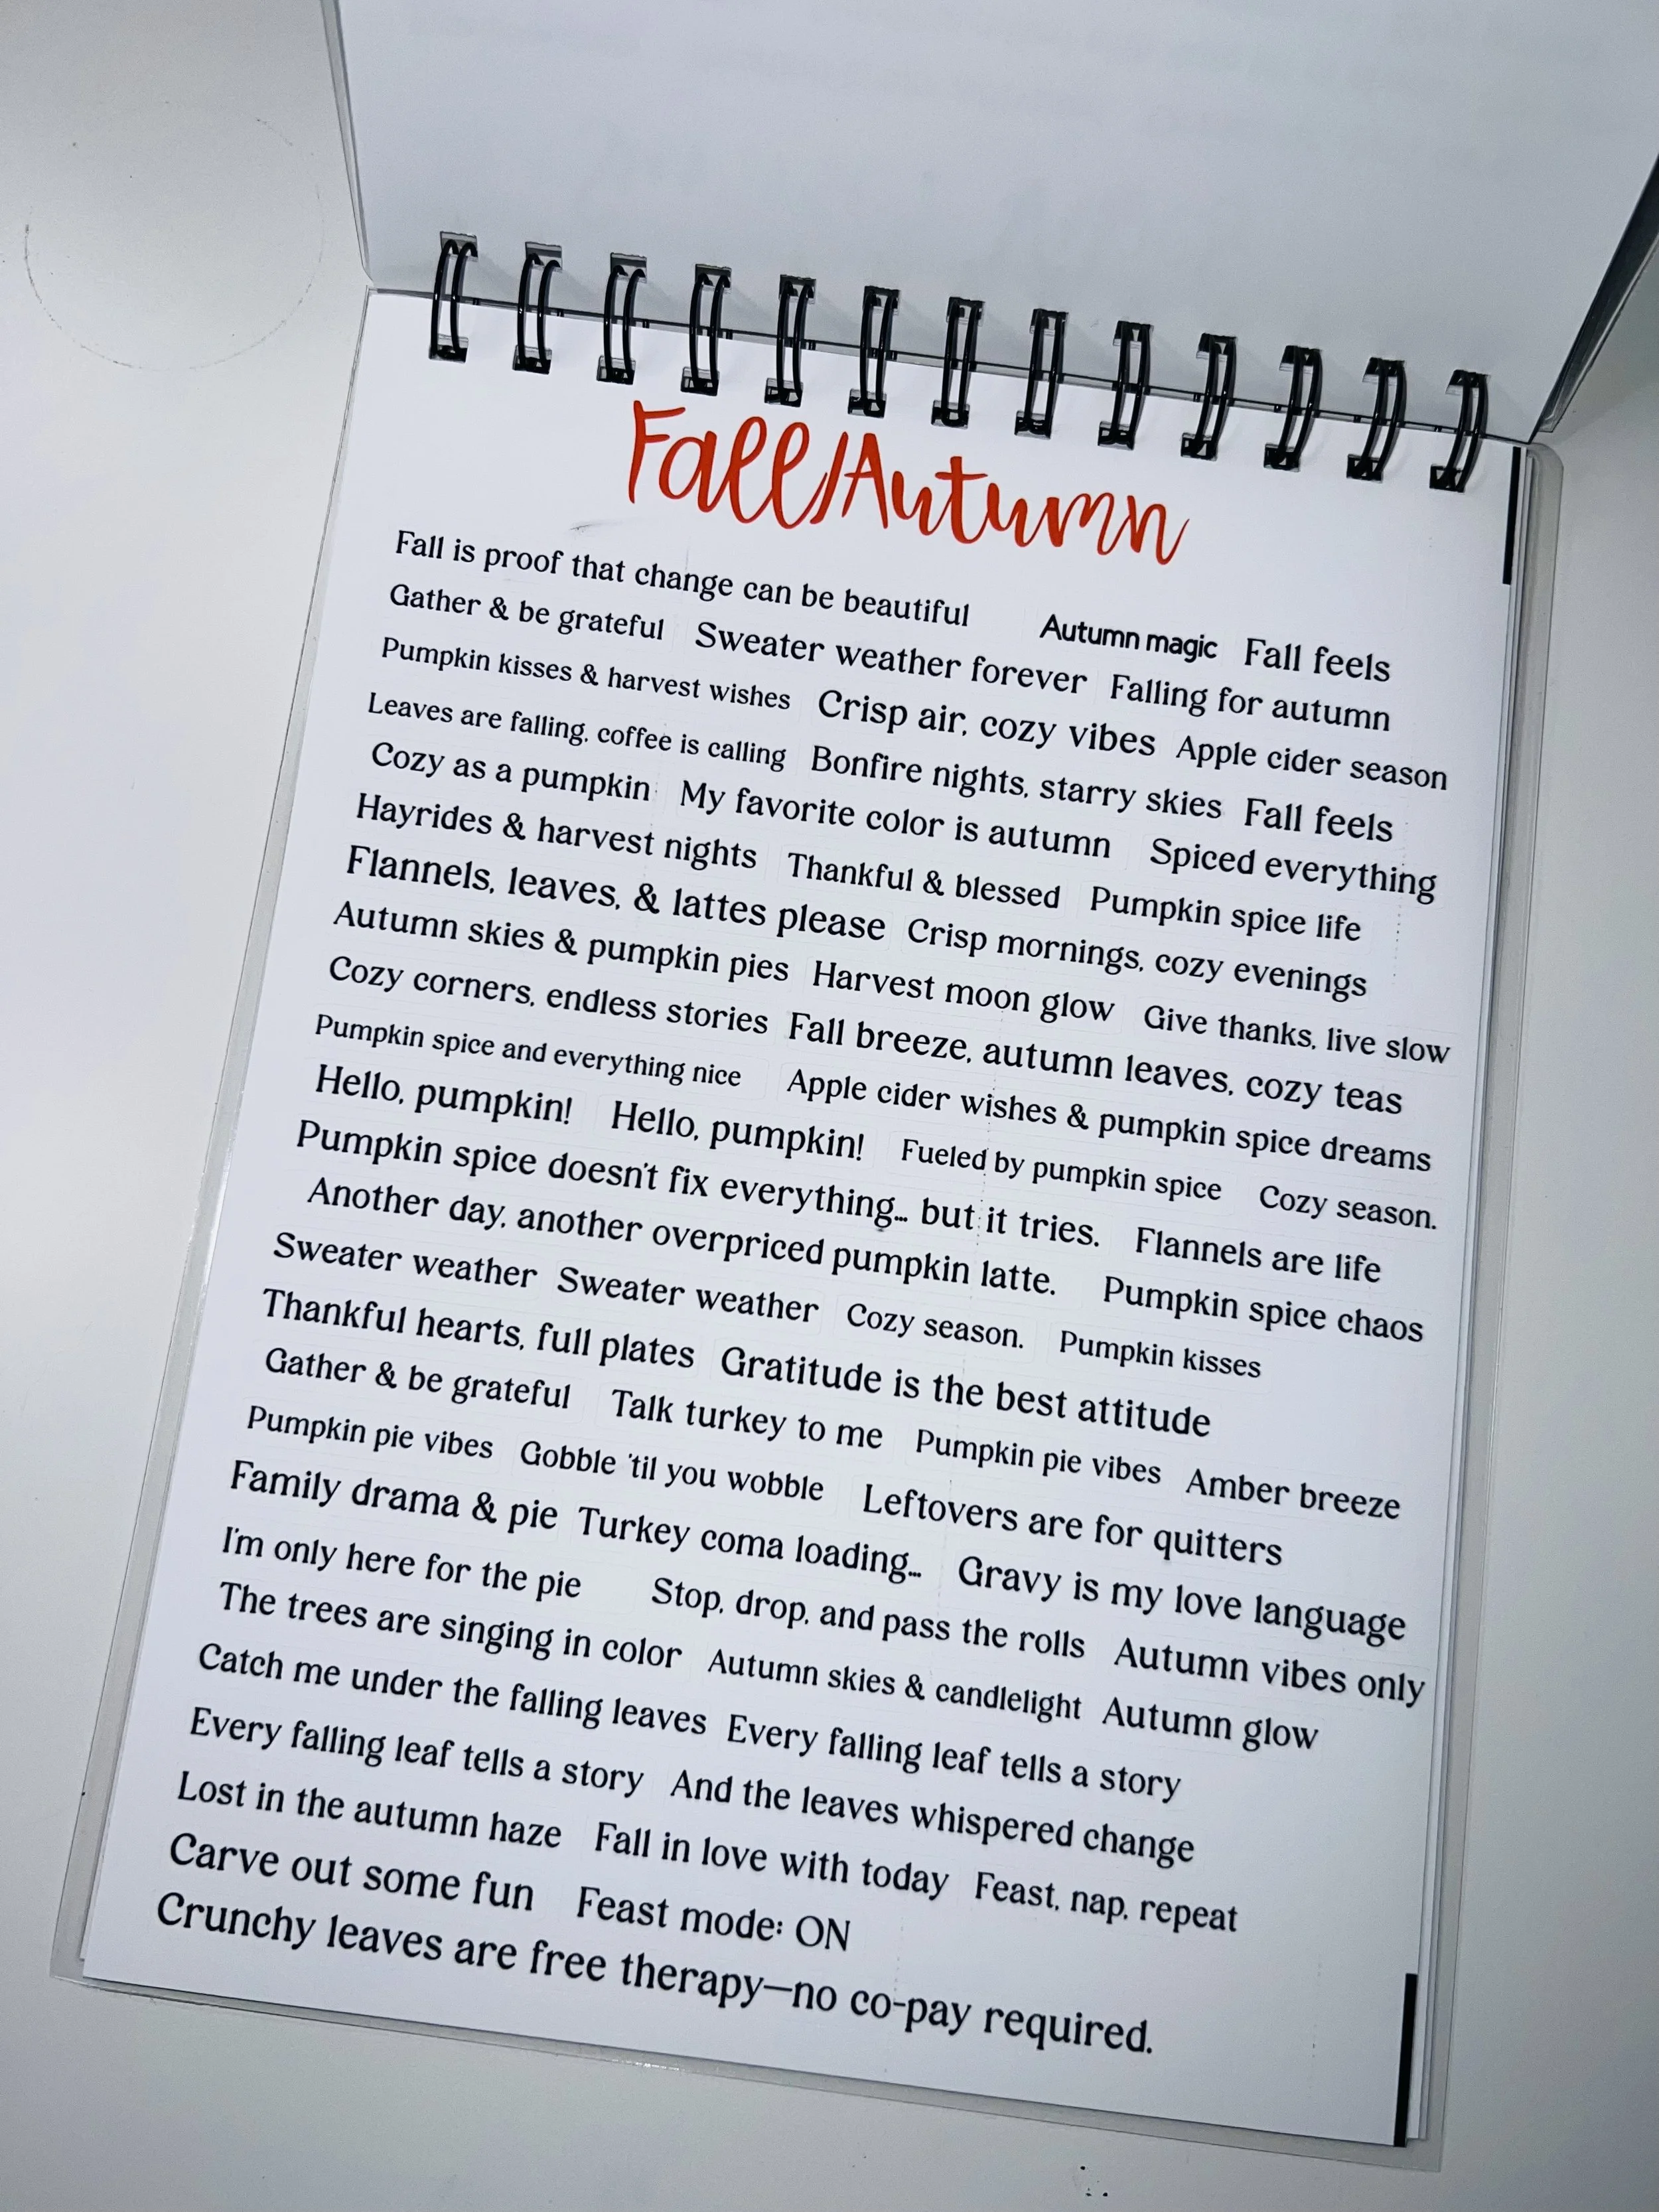 Fall/Autumn
Fall is proof that change can be beautiful Autumn magic Fall feels
Gather & be grateful Sweater weather forever Falling for autumn
Pumpkin kisses & harvest wishes Crisp air, cozy vibes Apple cider season
Leaves are falling, coffee is calling Bonfire nights, starry skies Fall feels
Cozy as a pumpkin My favorite color is autumn Spiced everything
Hayrides & harvest nights Thankful & blessed Pumpkin spice life
Flannels, leaves, & lattes please Crisp mornings, cozy evenings
Autumn skies & pumpkin pies Harvest moon glow Give thanks, live slow
Cozy corners, endless stories Fall breeze, autumn leaves, cozy teas
Pumpkin spice and everything nice Apple cider wishes & pumpkin spice dreams
Hello, pumpkin! Hello, pumpkin! Fueled by pumpkin spice Cozy season.
Pumpkin spice doesn't fix everything... but it tries. Flannels are life
Another day, another overpriced pumpkin latte. Pumpkin spice chaos
Sweater weather Sweater weather Cozy season. Pumpkin kisses
Thankful hearts, full plates Gratitude is the best attitude
Gather & be grateful Talk turkey to me Pumpkin pie vibes Amber breeze
Pumpkin pie vibes Gobble 'til you wobble Leftovers are for quitters
Family drama & pie Turkey coma loading... Gravy is my love language
I'm only here for the pie Stop, drop, and pass the rolls Autumn vibes only
The trees are singing in color Autumn skies & candlelight Autumn glow
Catch me under the falling leaves Every falling leaf tells a story
Every falling leaf tells a story And the leaves whispered change
Lost in the autumn haze Fall in love with today Feast, nap, repeat
Carve out some fun Feast mode: ON
Crunchy leaves are free therapy—no co-pay required.